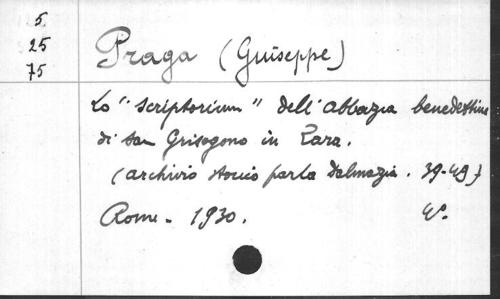 5
25
75
Praga (Guiseppe)
Lo "scriptorium" dell'abbazia benedettina
di san Grisogono in Zara.
(archivio storico per la Dalmazia. 39-49)
Rome - 1930. 4°.